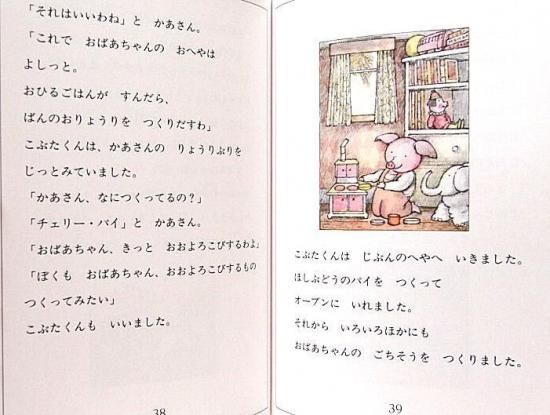 「それはいいわね」と　かあさん。
「これで　おばあちゃんの　おへやは
よしっと。
おひるごはんが　すんだら、
ばんのおりょうりを　つくりだすわ」
こぶたくんは、かあさんの　りょうりぶりを
じっとみていました。
「かあさん、なにつくってるの？」
「チェリー・パイ」と　かあさん。
「おばあちゃん、きっと　おおよろこびするわよ」
「ぼくも　おばあちゃん、おおよろこびするもの
つくってみたい」
こぶたくんも　いいました。
38
こぶたくんは　じぶんのへやへ　いきました。
ほしぶどうのパイを　つくって
オーブンに　いれました。
それから　いろいろほかにも
おばあちゃんの　ごちそうを　つくりました。
39